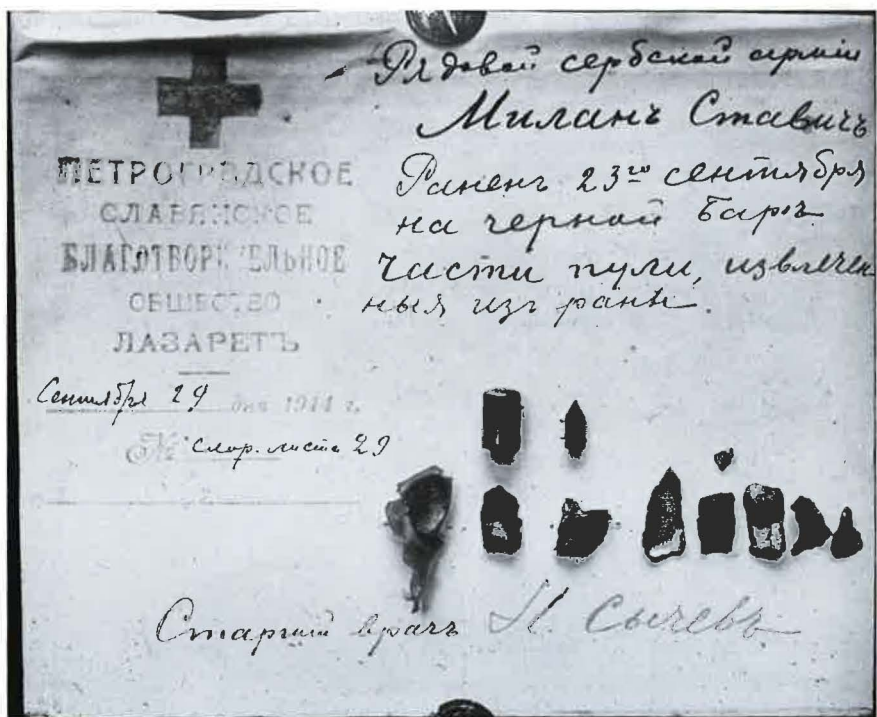 ПЕТРОГРАДСКОЕ
СЛАВЯНСКОЕ
БЛАГОТВОРИТЕЛЬНОЕ
ОБЩЕСТВО
ЛАЗАРЕТЪ
Сентября 29 дня 1914 г.
№ скор. листа 29
Рядовой сербской армiи
Миланъ Ставичъ
Раненъ 23го сентября
на черной Баръ
Части пули, извлечен-
ныя изъ раны.
Старший врачъ Н. Сычевъ